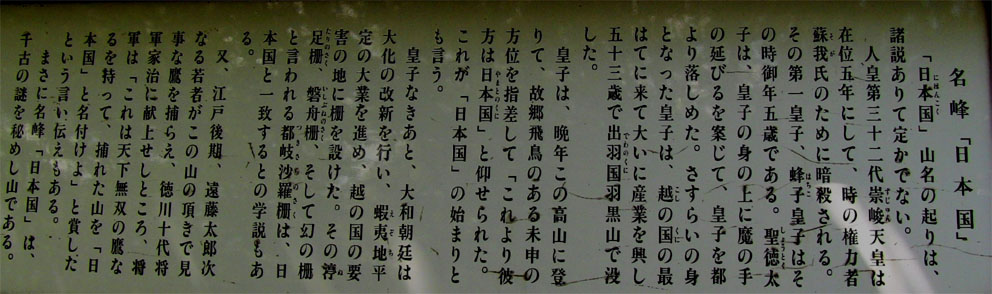 名峰「日本国」
「日本国」山名の起りは、
諸説ありて定かでない。
人皇第三十二代崇峻天皇は
在位五年にして、時の権力者
蘇我氏のために暗殺される。
その第一皇子、蜂子皇子はそ
の時御年五歳である。聖徳太
子は、皇子の身の上に魔の手
の延びるを案じて、皇子を都
より落しめた。さすらいの身
となった皇子は、越の国の最
はてに来て大いに産業を興し
五十三歳で出羽国羽黒山で没
した。
皇子は、晩年この高山に登
りて、故郷飛鳥のある未申の
方位を指差して「これより彼
方は日本国」と仰せられた。
これが「日本国」の始まりと
も言う。
皇子なきあと、大和朝廷は
大化の改新を行い、蝦夷地平
定の大業を進め、越の国の要
害の地に柵を設けた。その渟
足柵、磐舟柵、そして幻の柵
と言われる都岐沙羅柵は、日
本国と一致するとの学説もあ
る。
又、江戸後期、遠藤太郎次
なる若者がこの山の頂きで見
事な鷹を捕らえ、徳川十代将
軍家治に献上せしところ、将
軍は「これは天下無双の鷹な
るを持って、捕れた山を「日
本国」と名付けよ」と賞した
という言い伝えもある。
まさに名峰「日本国」は、
千古の謎を秘めし山である。